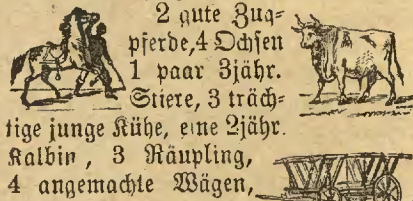 2 gute Zug=
pferde, 4 Ochsen
1 paar 3jähr.
Stiere, 3 träch=
tige junge Kühe, eine 2jähr.
Kalbin , 3 Räupling,
4 angemachte Wägen,